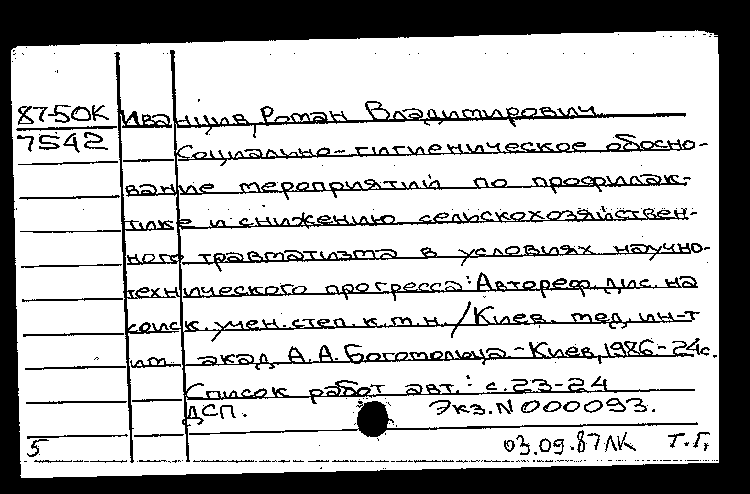 87-50К Иванцив, Роман Владимирович
7542
Социально-гигиеническое обосно-
вание мероприятий по профилак-
тике и снижению сельскохозяйствен-
ного травматизма в условиях научно-
технического прогресса: Автореф. дис. на
соиск. учен. степ. к.м.н. / Киев. мед. ин-т
им. акад. А.А. Богомольца - Киев, 1986 - 24с.
Список работ авт.: с. 23-24
ДСП. Экз. N 000093.
5 03.09.87 ЛК Т.Г,